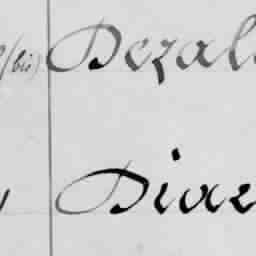 (bis) Dezal
Diaz